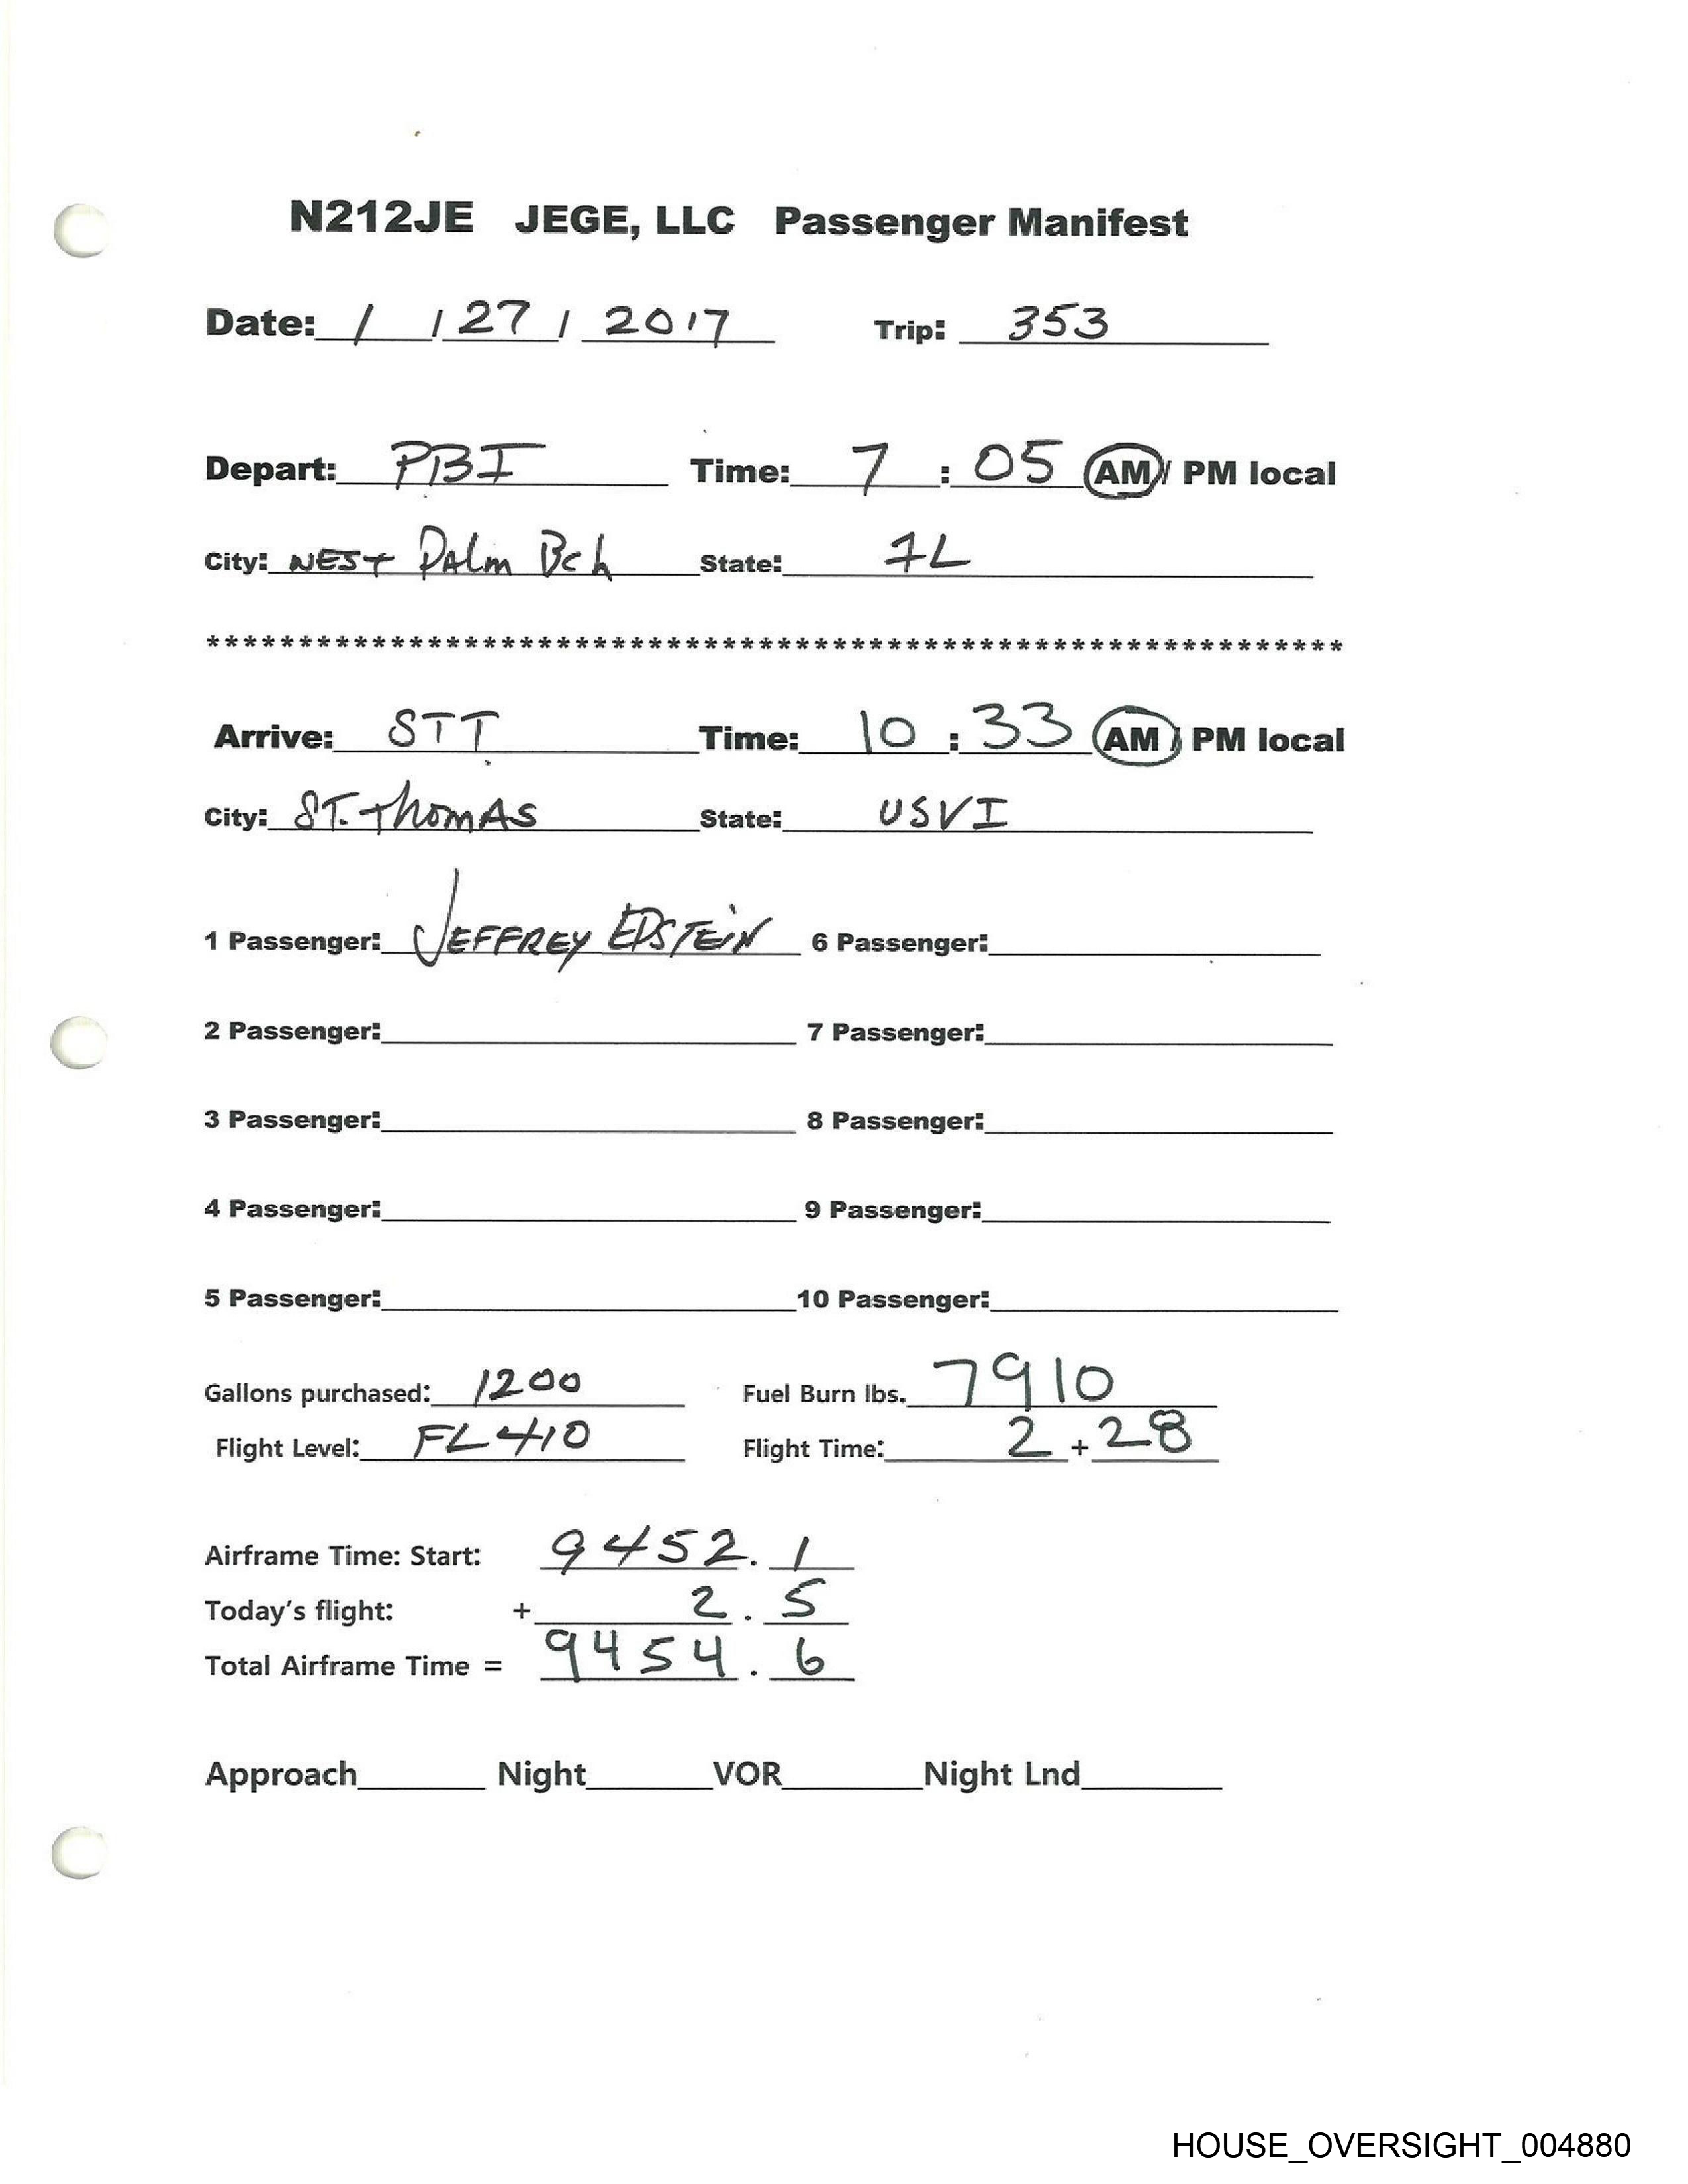 N212JE JEGE, LLC Passenger Manifest
Date: 1 / 27 / 2017 Trip: 353
Depart: PBI Time: 7 : 05 AM / PM local
City: WEST PALM Bch State: FL
*************************************************************
Arrive: STT Time: 10 : 33 AM / PM local
City: ST. THOMAS State: USVI
1 Passenger: JEFFREY EPSTEIN 6 Passenger:
2 Passenger: 7 Passenger:
3 Passenger: 8 Passenger:
4 Passenger: 9 Passenger:
5 Passenger: 10 Passenger:
Gallons purchased: 1200 Fuel Burn lbs. 7910
Flight Level: FL410 Flight Time: 2 + 28
Airframe Time: Start: 9452.1
Today's flight: + 2.5
Total Airframe Time = 9454.6
Approach Night VOR Night Lnd
HOUSE_OVERSIGHT_004880